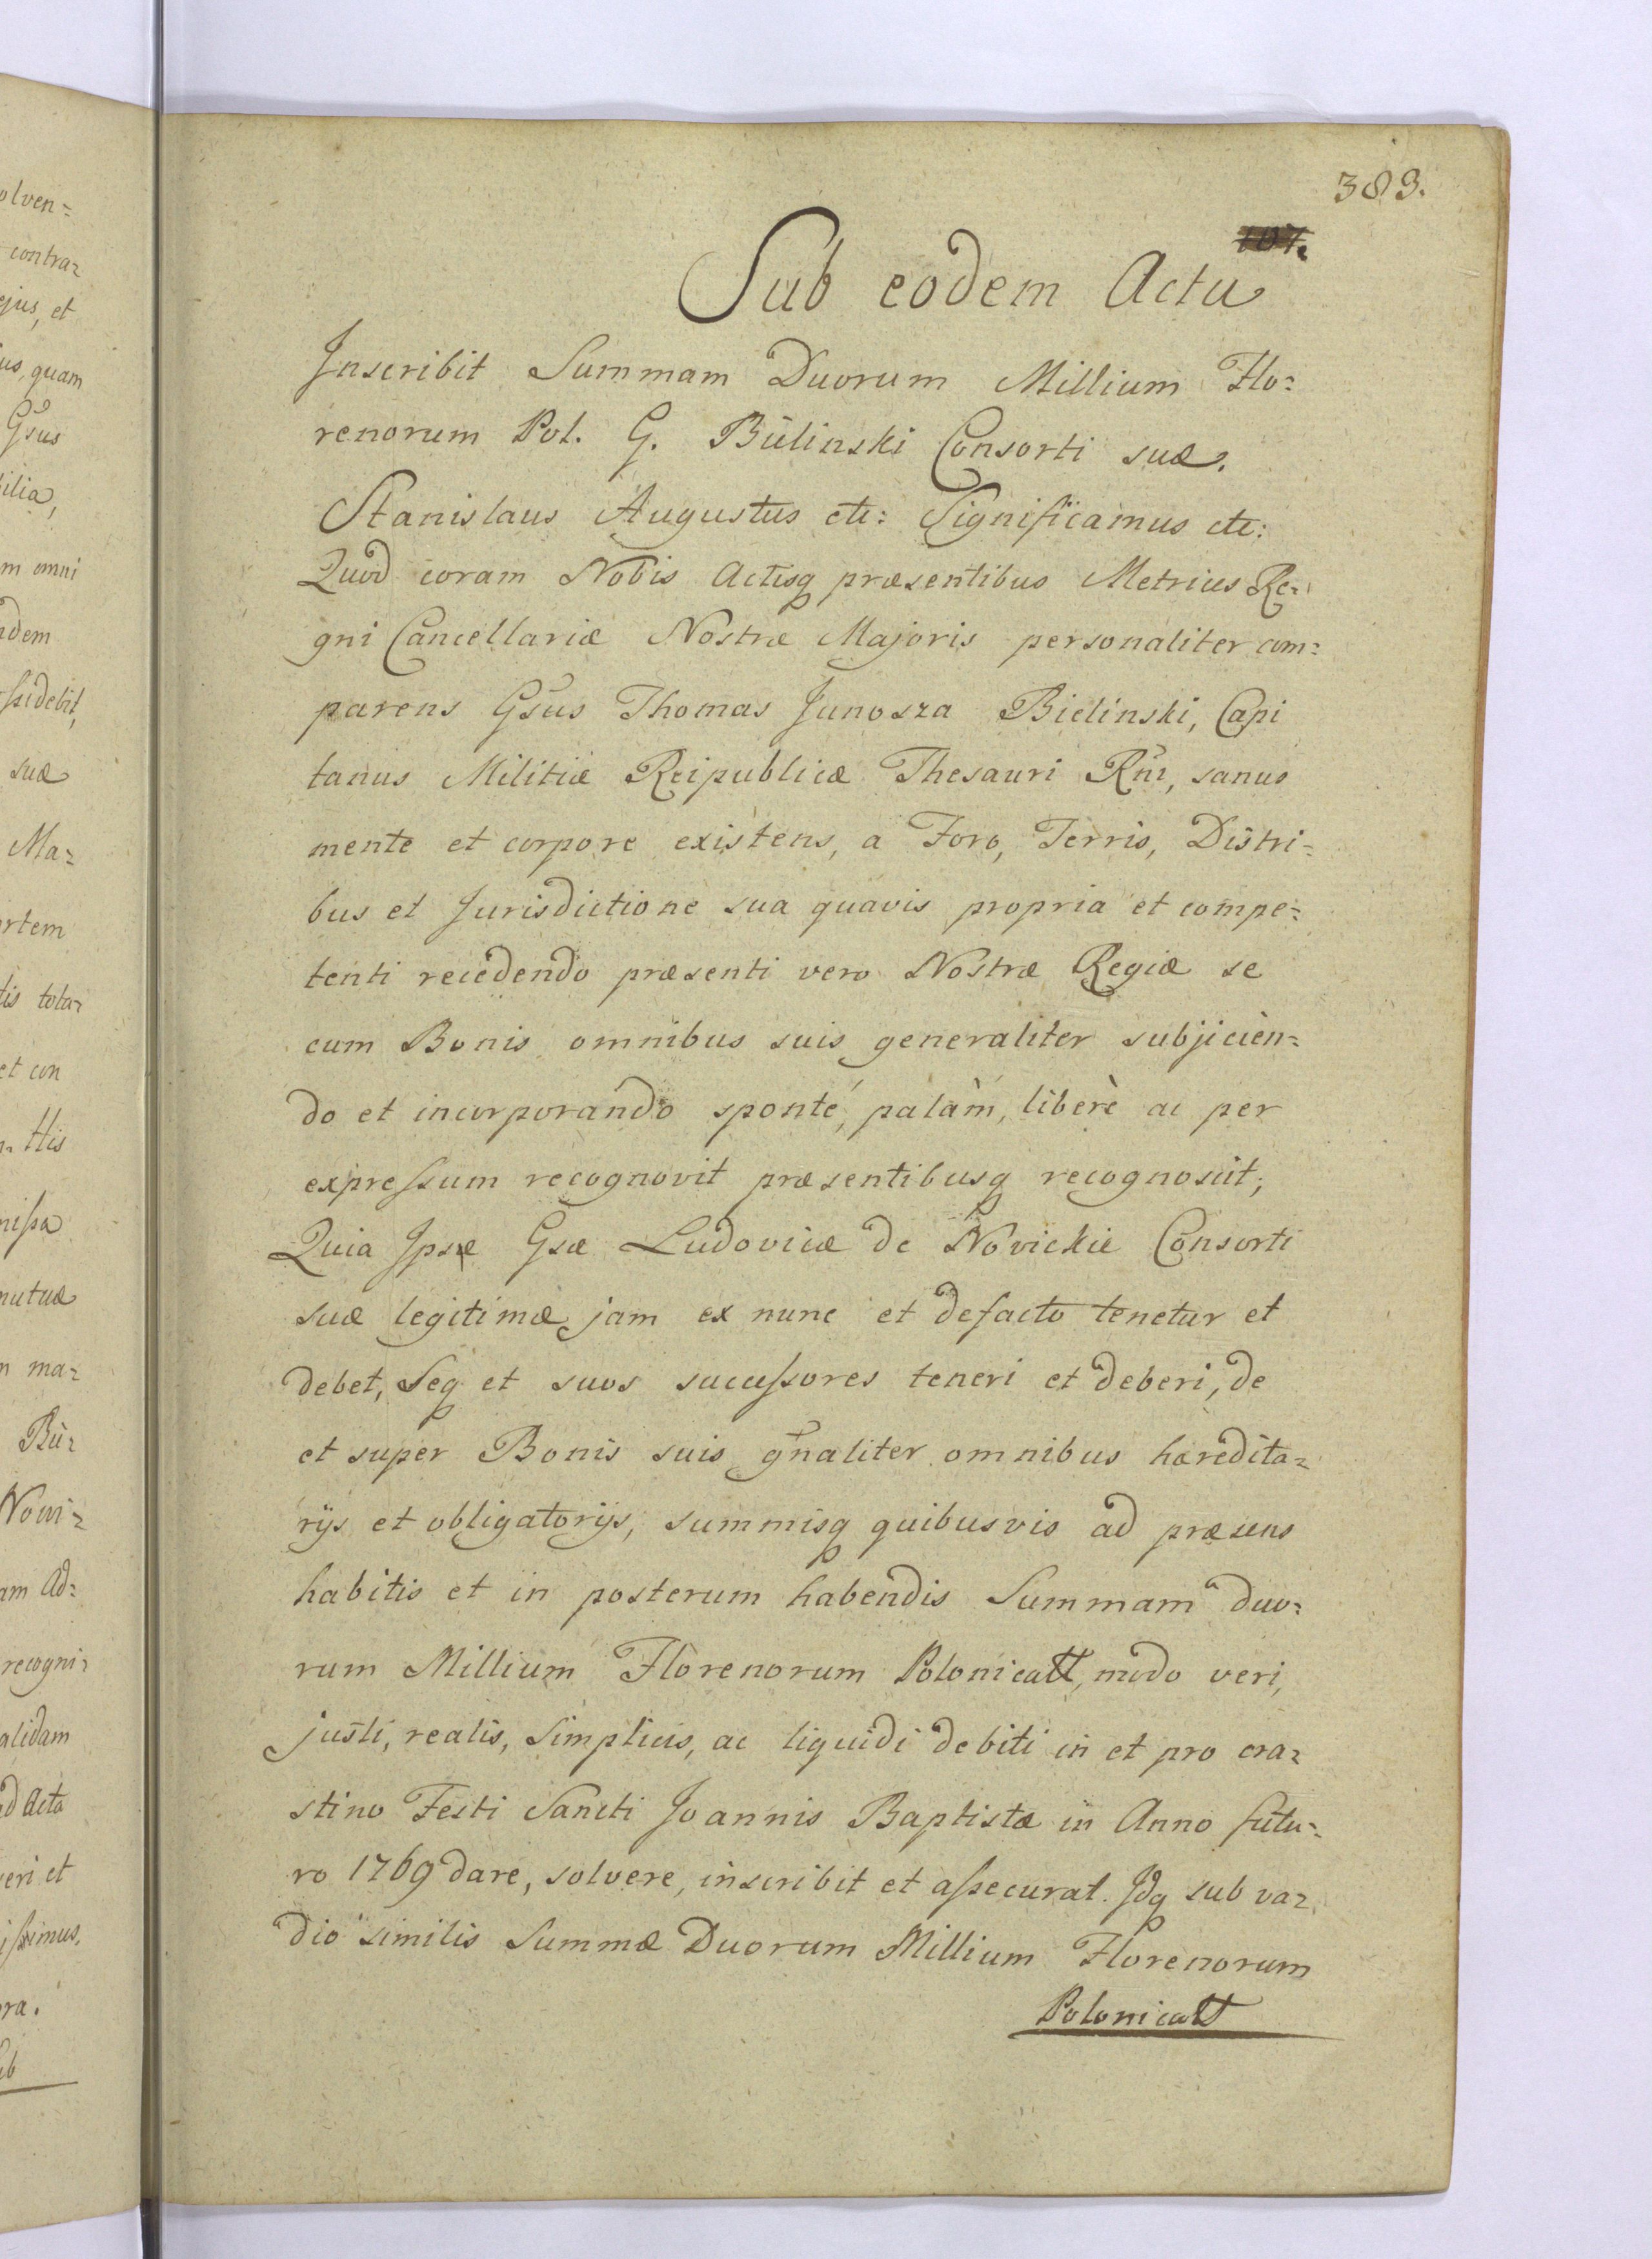 383.
107.
Sub eodem Actu
Inscribit Summam Duorum Millium Flo=
renorum Pol. G. Bïelinski Consorti suæ.
Stanislaus Augustus etc: Significamus etc:
Quod coram Nobis Actisq præsentibus Metrices Re=
gni Cancellariæ Nostræ Majoris personaliter com=
parens Gsus Thomas Junosza Bielinski, Capi
tanus Militiæ Reipublicæ Thesauri Rni, sanus
mente et corpore existens, a Foro, Terris, Distri=
bus et Jurisdictione sua quavis propria et compe=
tenti recedendo præsenti vero Nostræ Regiæ se
cum Bonis omnibus suis generaliter subjicien=
do et incorporando sponté, palàm, liberè ac per
expreſsum recognovit præsentibusq recognoscit;
Quia Ipsæ Gsæ Ludovicæ de Novickie Consorti
suæ legitimæ jam ex nunc et defacto tenetur et
debet, Seq et suos succeſsores teneri et deberi, de
et super Bonis suis gnaliter omnibus hæredita=
rijs et obligatorijs, summisq quibusvis ad præsens
habitis et in posterum habendis Summam duo=
rum Millium Florenorum Polonicatt, modo veri,
justi, realis, Simplicis, ac liquidi debiti in et pro cra=
stino Festi Sancti Joannis Baptistæ in Anno futu=
ro 1769 dare, solvere, inscribit et aſsecurat. Idq sub va=
dio similis Summæ Duorum Millium Florenorum
Polonicatt
olven=
contra=
ejus, et
us, quam
Gsus
ilia,
m omni
ndem
ſsidebit,
suæ
Ma=
ortem
tis tota=
et con
His
miſsa
mutuæ
n ma=
Bü=
Novi=
am Ad=
recogni=
alidam
ad Acta
veri et
iſsimus,
ora.
ub